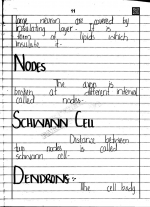 large neuron are covered by
insulating layer. It is
form of lipids which
insulate it.
NODES
The axon is
broken at different interval
called nodes.
SCHWANN CELL
Distance between
two nodes is called
schwann cell.
DENDRONS:-
The cell body